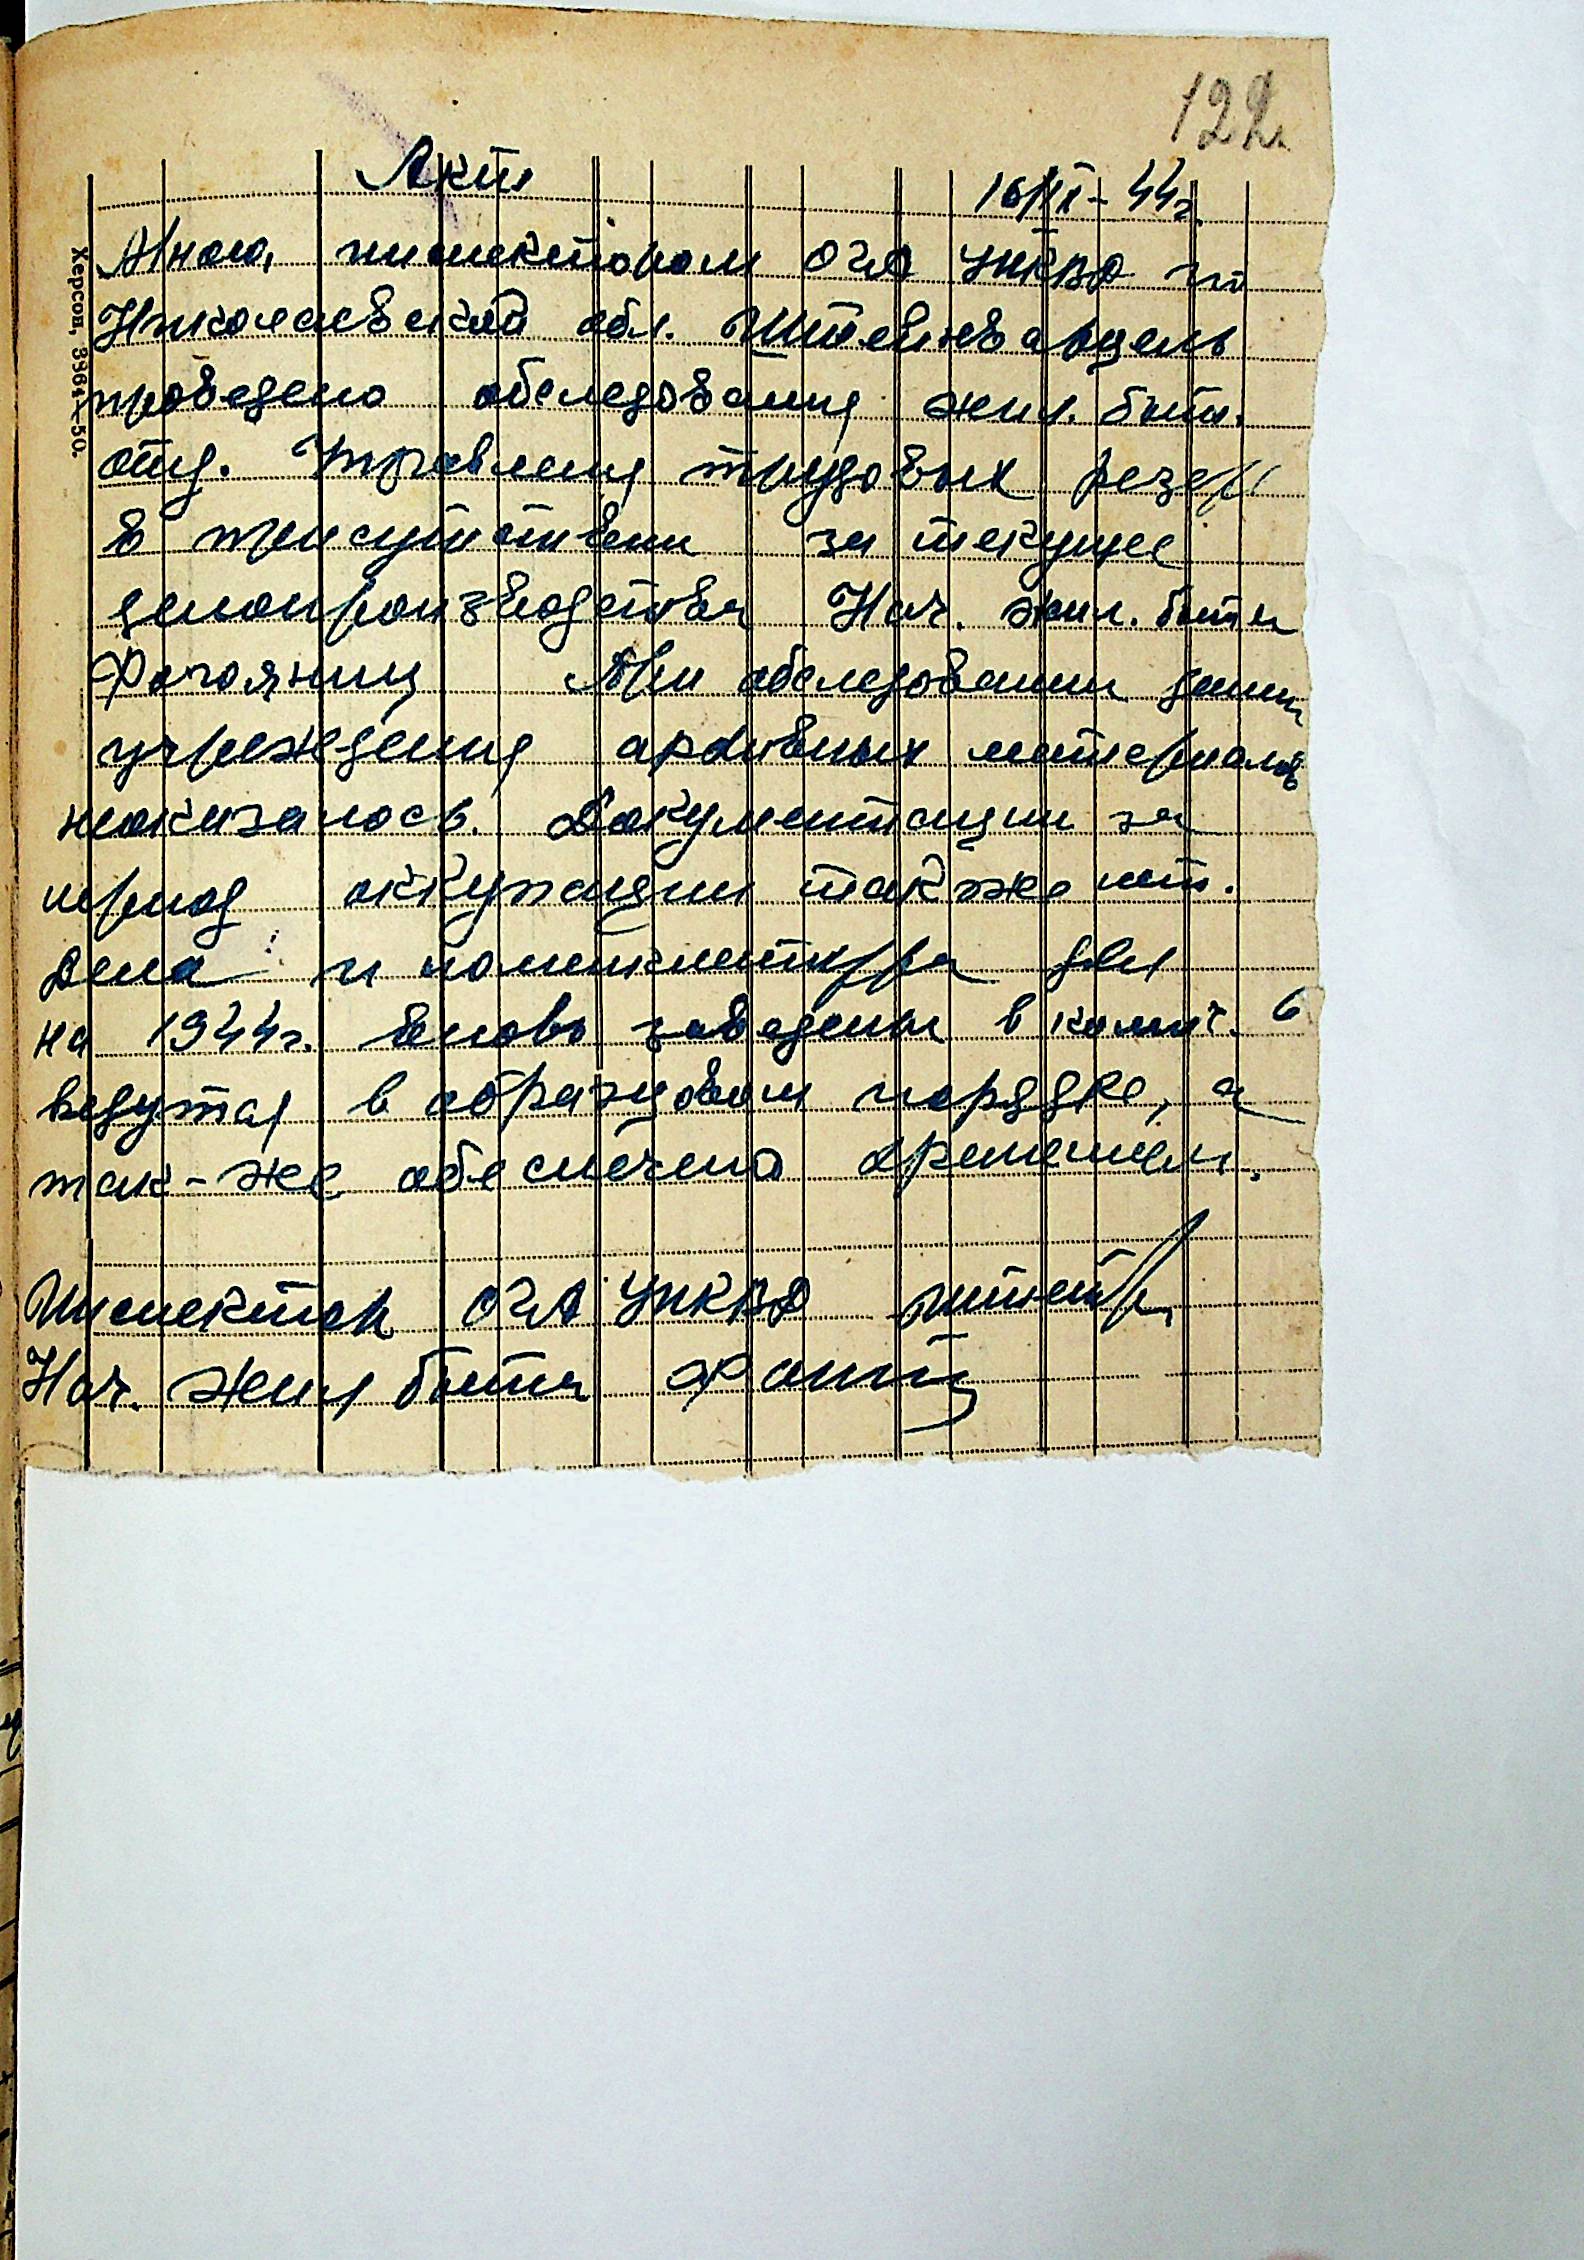 122
Акт
16/IX - 44г.
Мною, инспектором ОГА УНКВД по
Николаевской обл. Штейнварцель
проведено обследования жил. быт.
отд. Управления трудовых резер
в присутствии за текущее
делопроизводства Нач. жил. быта
При обследовании данн
учреждения архивных материалов
неоказалось. Документации за
период оккупации так же нет.
Дела и номенклатура дел
на 1944г. вновь заведены в колич. 6
ведутся в образцовом порядке, а
так-же обеспечено хранением.
Инспектор ОГА УНКВД
Нач. жил быта
Херсон, 3964-50.